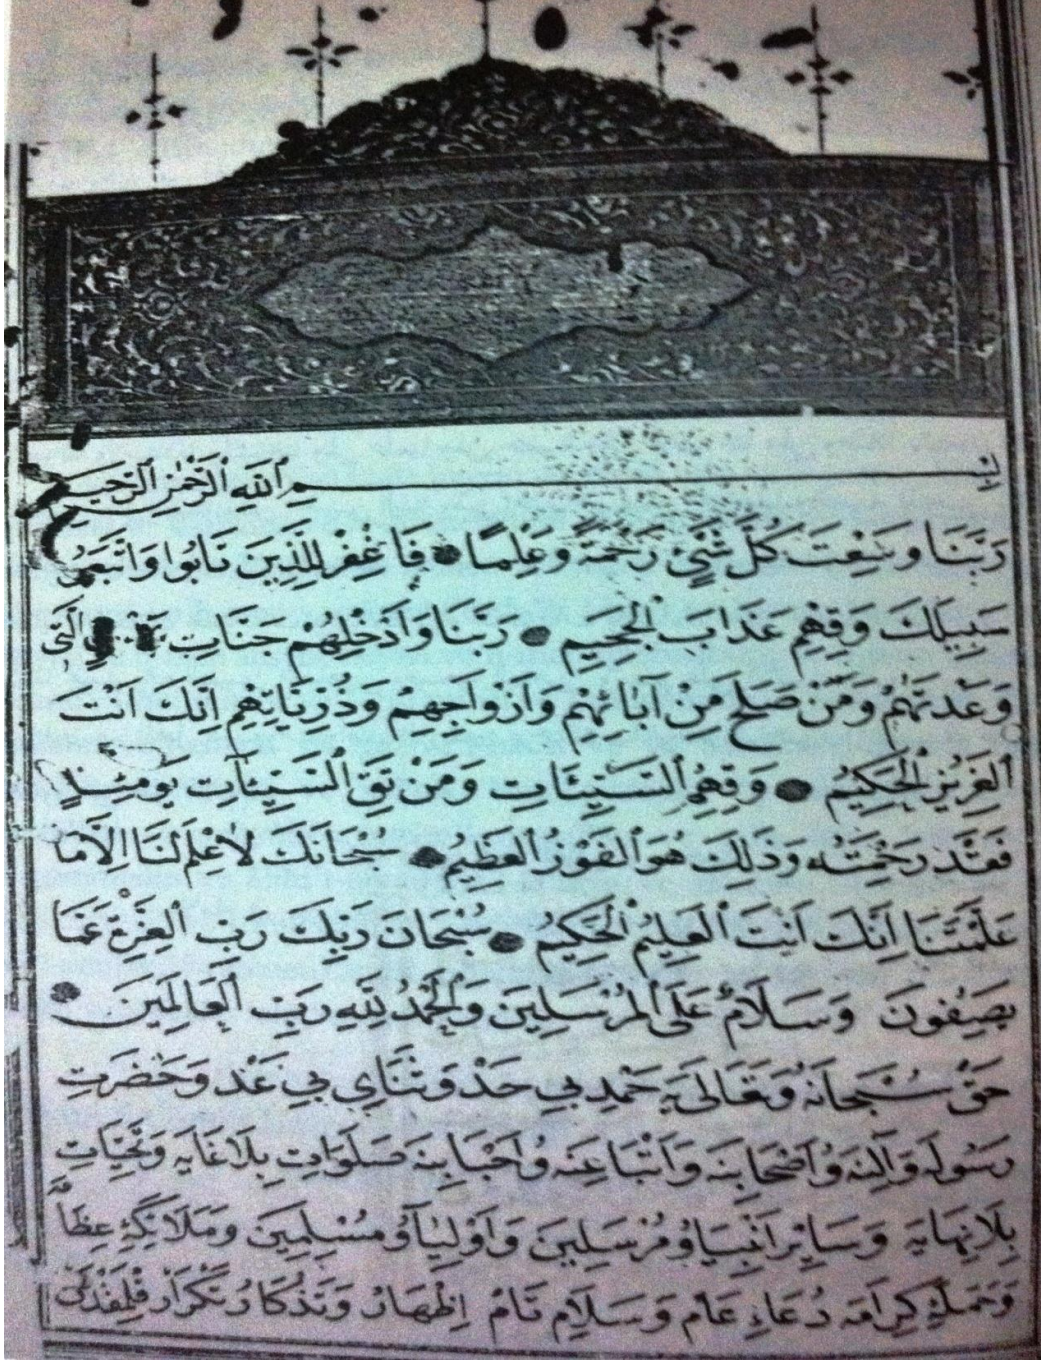 بِسْمِ ٱللّٰهِ ٱلرَّحْمٰنِ ٱلرَّحِيمِ
رَبَّنَا وَسِعْتَ كُلَّ شَيْءٍ رَحْمَةً وَعِلْمًا فَاغْفِرْ لِلَّذِينَ تَابُوا وَاتَّبَعُوا
سَبِيلَكَ وَقِهِمْ عَذَابَ ٱلْجَحِيمِ رَبَّنَا وَاَدْخِلْهُمْ جَنَّاتِ ٱلَّتِى
وَعَدْتَهُمْ وَمَنْ صَلَحَ مِنْ آبَائِهِمْ وَاَزْوَاجِهِمْ وَذُرِّيَّاتِهِمْ اِنَّكَ اَنْتَ
ٱلْعَزِيزُ ٱلْحَكِيمُ وَقِهِمُ ٱلسَّيِّئَاتِ وَمَنْ تَقِ ٱلسَّيِّئَاتِ يَوْمَئِذٍ
فَقَدْ رَحِمْتَهُ وَذٰلِكَ هُوَ ٱلْفَوْزُ ٱلْعَظِيمُ سُبْحَانَكَ لَا عِلْمَ لَنَا اِلَّا مَا
عَلَّمْتَنَا اِنَّكَ اَنْتَ ٱلْعَلِيمُ ٱلْحَكِيمُ سُبْحَانَ رَبِّكَ رَبِّ ٱلْعِزَّةِ عَمَّا
يَصِفُونَ وَسَلَامٌ عَلَى ٱلْمُرْسَلِينَ وَٱلْحَمْدُ لِلّٰهِ رَبِّ ٱلْعَالَمِينَ
حَقْ سُبْحَانَهُ وَتَعَالَى يَه حَمْدِ بِي حَدْ وَثَنَاىِ بِي عَدْ وَحَضْرَتِ
رَسُولَه وَآلِنَه وَاَصْحَابِنَه وَاَتْبَاعِنَه وَاَحْبَابِنَه صَلَوَاتِ بِلَا غَايَه وَتَحِيَّاتِ
بِلَا نِهَايَه وَسَائِرِ اَنْبِيَاءِ مُرْسَلِينَ وَاَوْلِيَاءِ مُسْلِمِينَ وَمَلَائِكَۀِ عِظَامْ
وَحَمَلَۀِ كِرَامَه دُعَاءِ عَامْ وَسَلَامِ تَامْ اِظْهَارْ وَتَذْكَارْ وَتَكْرَارْ قِلِنْدُقْدَنْ